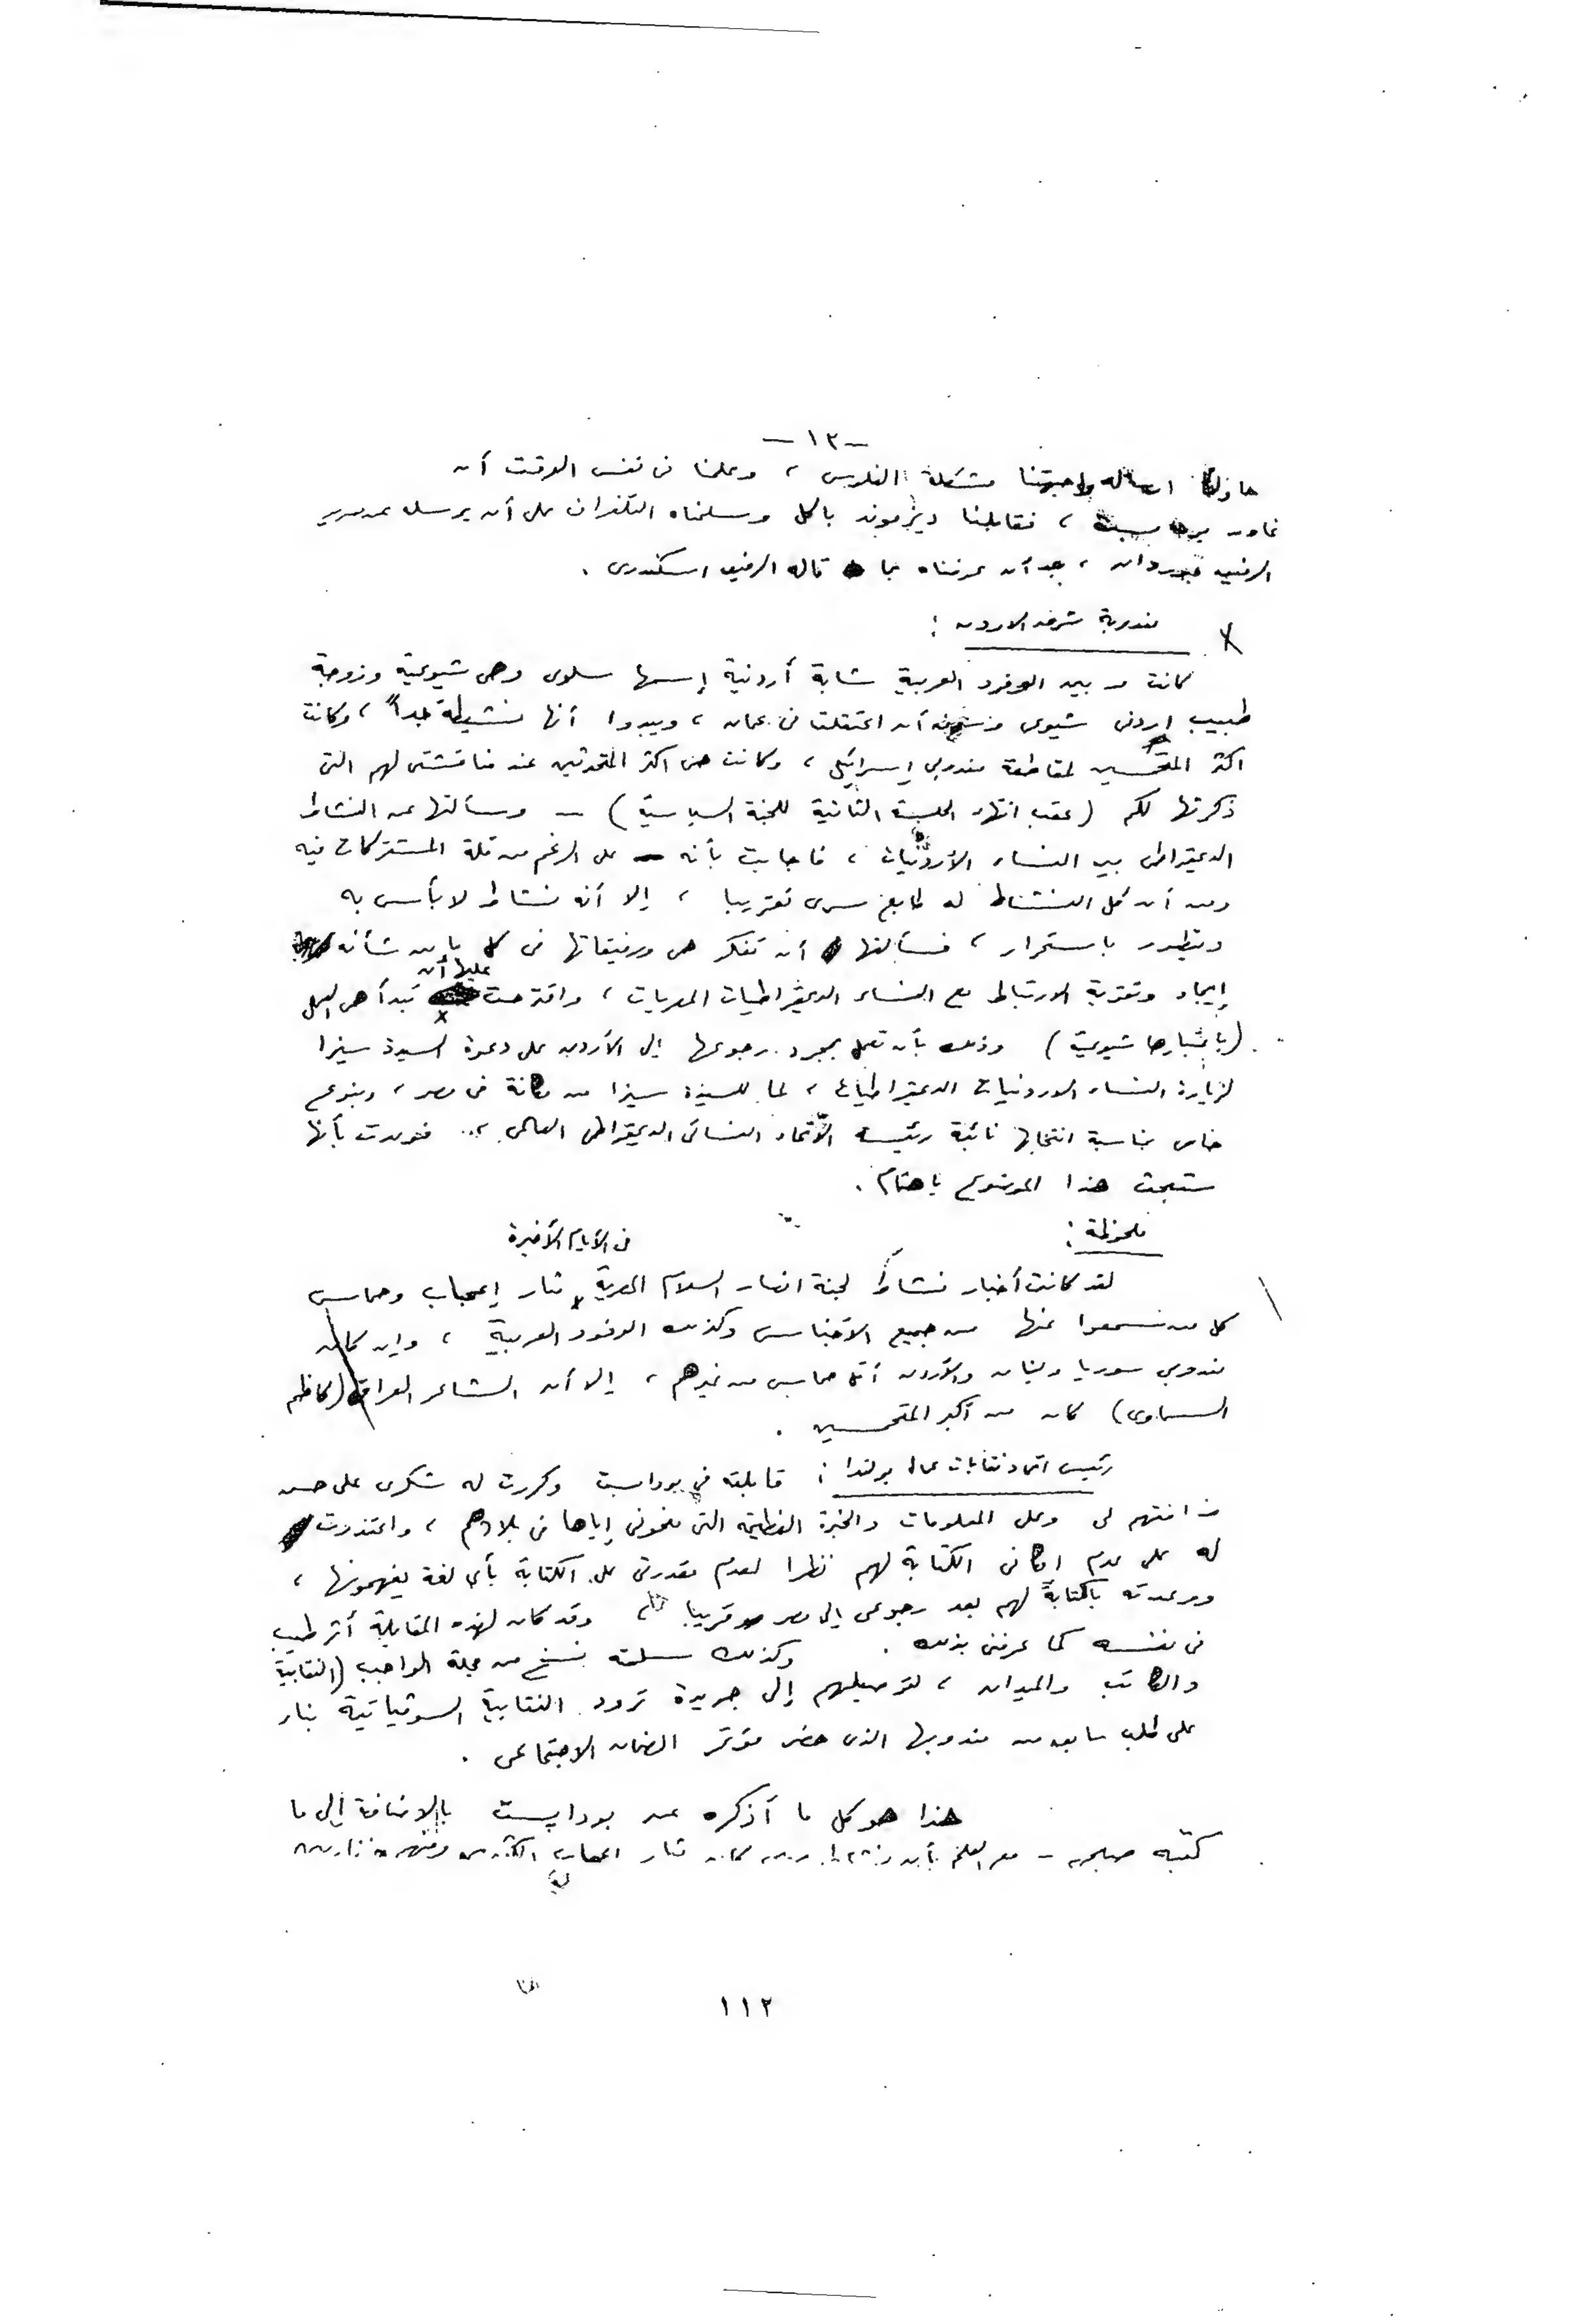 -١٢-
حاولنا ارساله واجهتنا مشكلة الفلوس ، وعلمنا فى نفس الوقت أن
، فقابلنا ديزموند باكل وسلمناه التلغراف على أن يرسله
الرفيق ، بعد أن عرفناه بما قاله الرفيق اسكندرى .
مندوبة شرق الاردن :
كانت من بين الوفود العربية شابة أردنية إسمها سلوى وهى شيوعية وزوجة
طبيب اردنى شيوعى وسبق أن اعتقلت فى عمان ، ويبدوا أنها نشيطة جداً ، وكانت
اكثر المتحمسين لمقاطعة مندوبى إسرائيل ، وكانت من اكثر المتحدثين عند مناقشتى لهم التى
ذكرتها لكم (عقب انتهاء الجلسة الثانية للجنة السياسية) - وسألتها عن النشاط
الديمقراطى بين النساء الأردنيات ، فاجابت بأنه على الرغم من قلة المشتركات فيه
ومن أن كل النشاط له طابع سرى تقريبا ، إلا أنه نشاط لا بأس به
ويتطور باستمرار ، فسألتها أن تفكر هى ورفيقاتها فى كل ما من شأنه
إيجاد وتقوية الارتباط مع النساء الديمقراطيات المصريات ، واقترحت عليها أن تبدأ هى العمل
(باعتبارها شيوعية) وذلك بأن تعمل بمجرد رجوعها إلى الأردن على دعوة السيدة سيزا
لزيارة النساء الاردنيات الديمقراطيات ، لما للسيدة سيزا من مكانة فى مصر ، وبنوع
خاص بمناسبة انتخابها نائبة رئيسة الأتحاد النسائى الديمقراطى العالمى ، فوعدت بأنها
ستبحث هذا الموضوع باهتمام .
ملحوظة :
لقد كانت أخبار نشاط لجنة انصار السلام المصرية فى الأيام الأخيرة مثار إعجاب وحماس
كل من سمعوا عنها من جميع الأجناس وكذلك الوفود العربية ، وإن كان
مندوبى سوريا ولبنان والأردن أقل حماس من غيرهم ، إلا أن الشاعر العراقى (كاظم
السماوى) كان من أكبر المتحمسين .
رئيس اتحاد نقابات عمال بولندا : قابلته فى بودابست وكررت له شكرى على حسن
ضيافتهم لى وعلى المعلومات والخبرة العظيمة التى منحونى إياها فى بلادهم ، واعتذرت
له على عدم امكانى الكتابة لهم نظرا لعدم مقدرتى على الكتابة بأى لغة يفهمونها ،
ووعدته بالكتابة لهم بعد رجوعى إلى مصر قريبا ، وقد كان لهذه المقابلة أثر طيب
فى نفسه كما عرفنى بذلك . وكذلك سلمته نسخ من مجلة الواجب (النقابية
والكاتب والميدان ، لتوصيلهم إلى جريدة ترود النقابية السوفياتية بناء
على طلب سابق من مندوبها الذى حضر مؤتمر الضمان الاجتماعى .
هذا هو كل ما أذكره عن بودابست بالإضافة إلى ما
كتبه - مع العلم بأن كان مثار اعجاب الكثيرين
١١٢